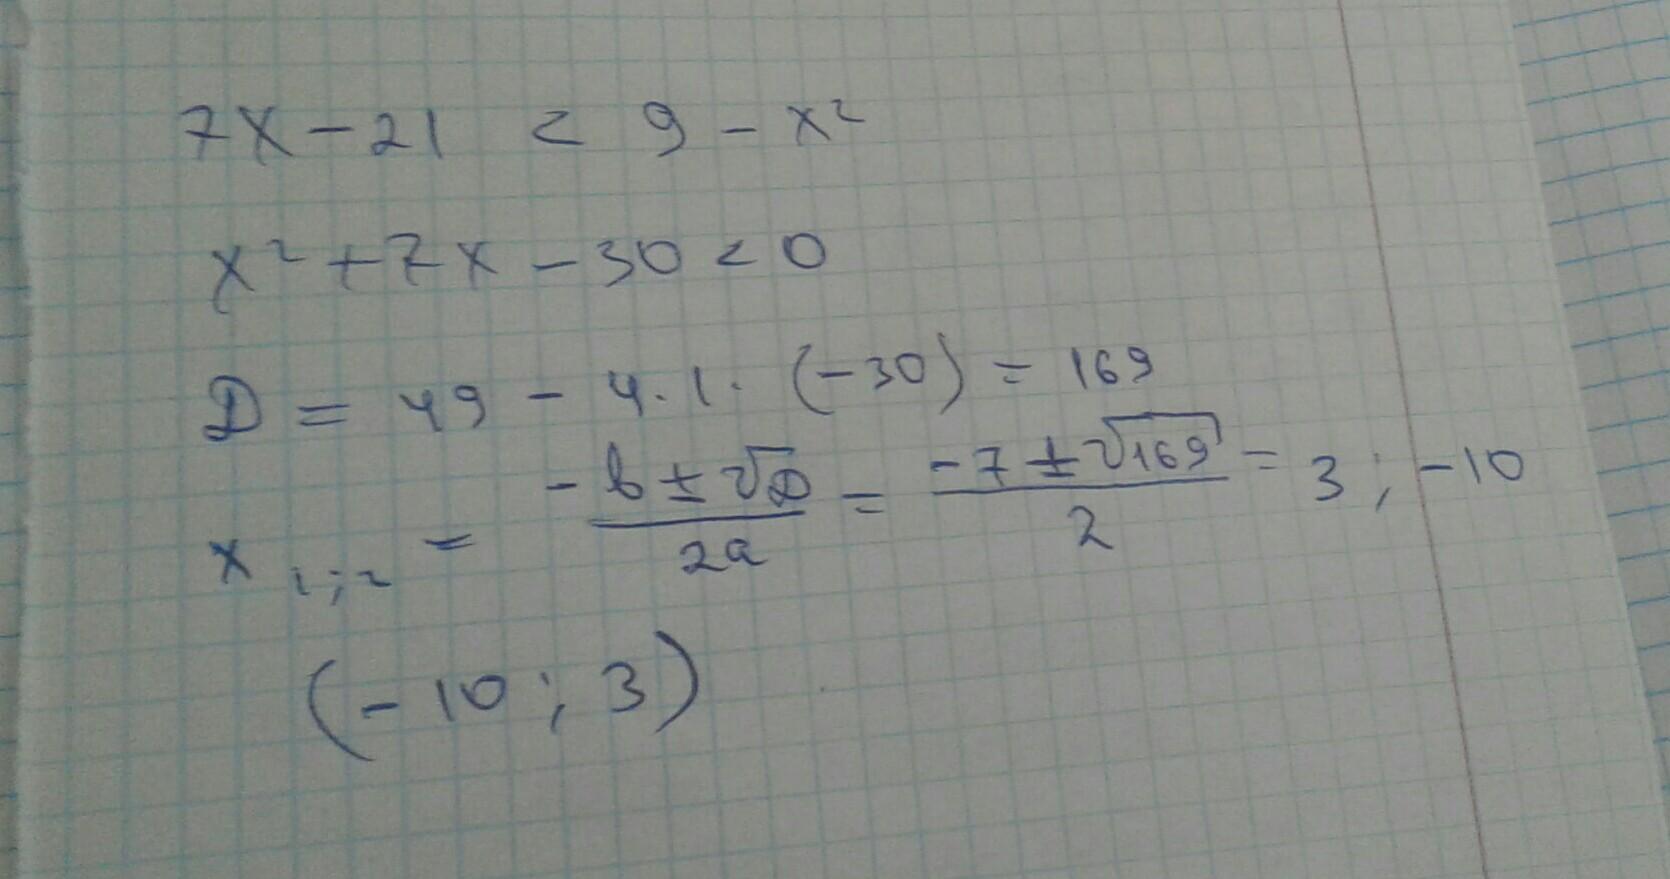 7x - 21 < 9 - x²
x² + 7x - 30 < 0
D = 49 - 4·1·(-30) = 169
x₁;₂ = (-b ± √D)/(2a) = (-7 ± √169)/2 = 3; -10
(-10; 3)